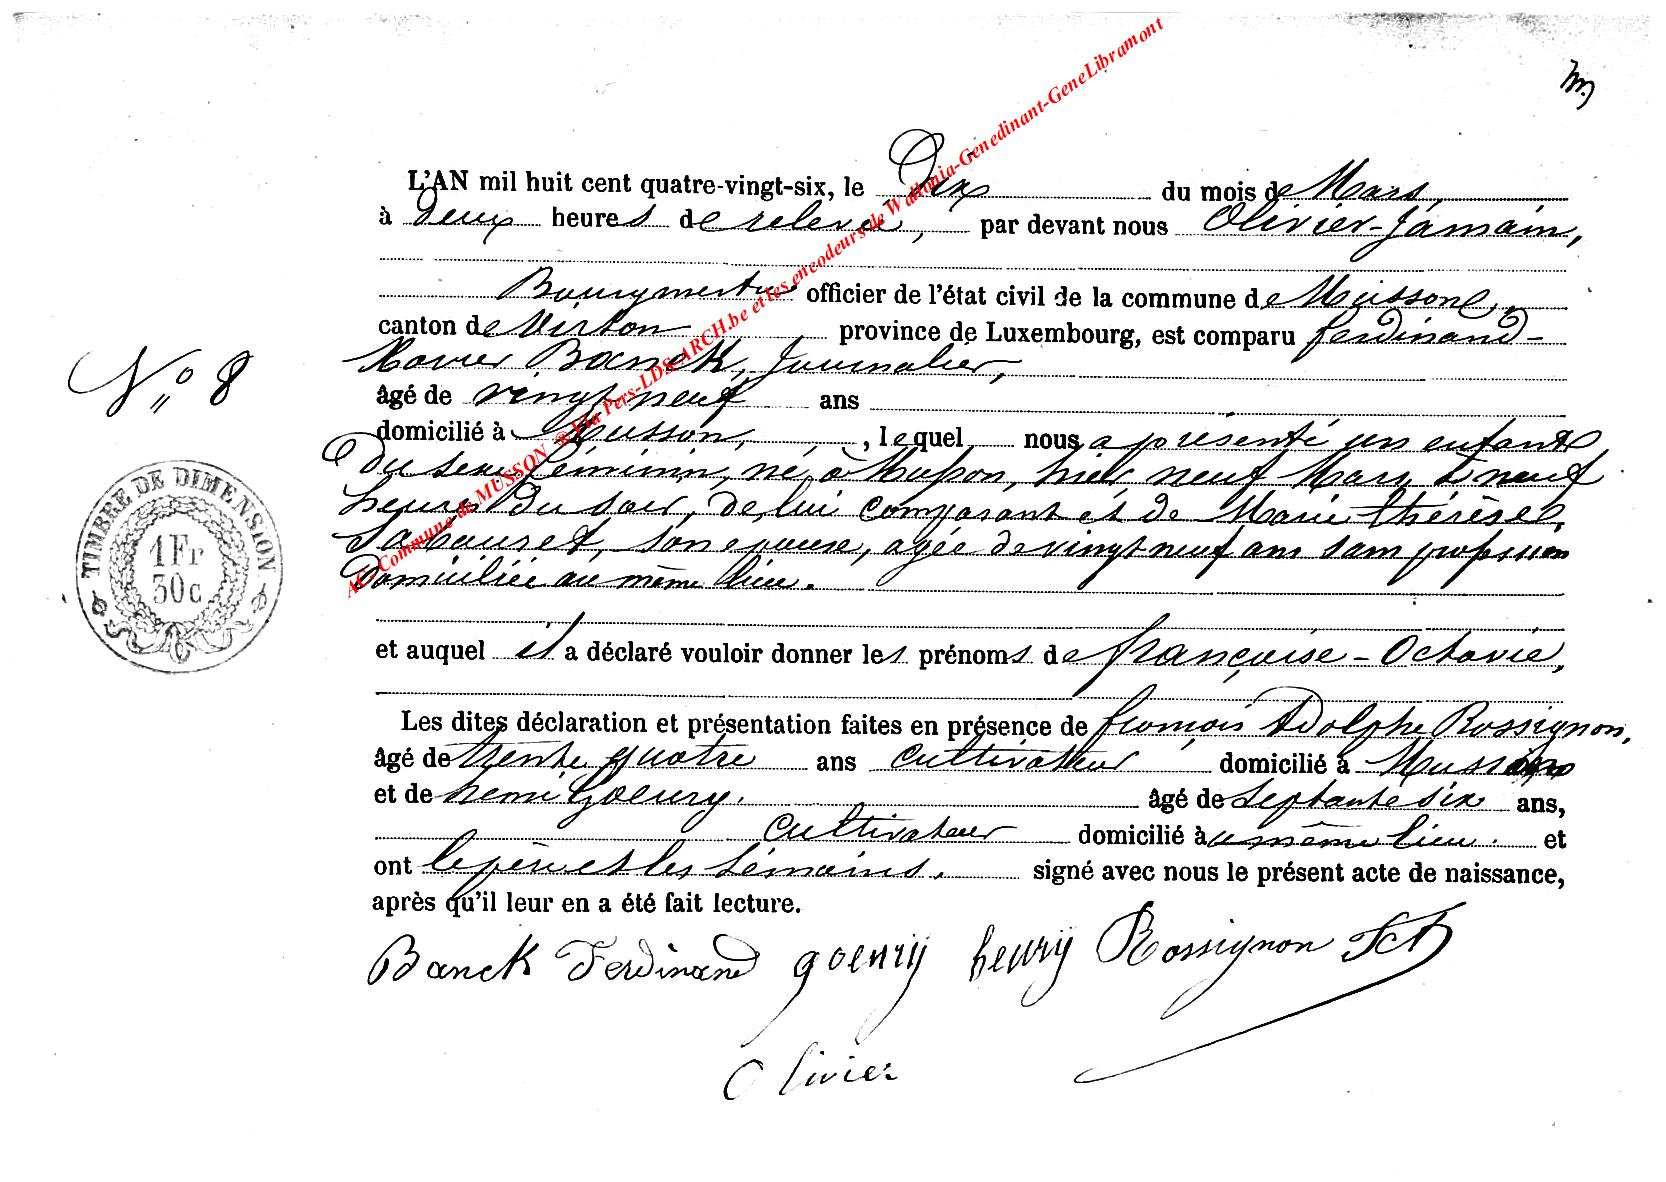 L'AN mil huit cent quatre-vingt-six, le Dix du mois de Mars,
à deux heures de relevée, par devant nous Olivier-Jamain,
Bourgmestre officier de l'état civil de la commune de Musson,
canton de Virton province de Luxembourg, est comparu ferdinand-
Xavier Banck, Journalier,
N° 8
âgé de vingt neuf ans
domicilié à Musson, lequel nous a présenté un enfant
du sexe féminin, né à Musson, hier neuf Mars à neuf
heures du soir, de lui comparant et de Marie thérèse
son epouse, agée de vingt neuf ans sans profession
domiciliée au même lieu.
TIMBRE DE DIMENSION
1 Fr
30c
et auquel il a déclaré vouloir donner les prénoms de françoise-Octavie,
Les dites déclaration et présentation faites en présence de françois Adolphe Rossignon,
âgé de trente quatre ans cultivateur domicilié à Musson
et de henri Goeury. âgé de septante six ans,
cultivateur domicilié à u même lieu. et
ont le père et les témoins. signé avec nous le présent acte de naissance,
après qu'il leur en a été fait lecture.
Banck Ferdinand goeury henry Rossignon
Olivier
AG Commune de MUSSON ® Via Pers-LDS-ARCH.be et les encodeurs de Wallonia-Genedinant-GeneLibramont